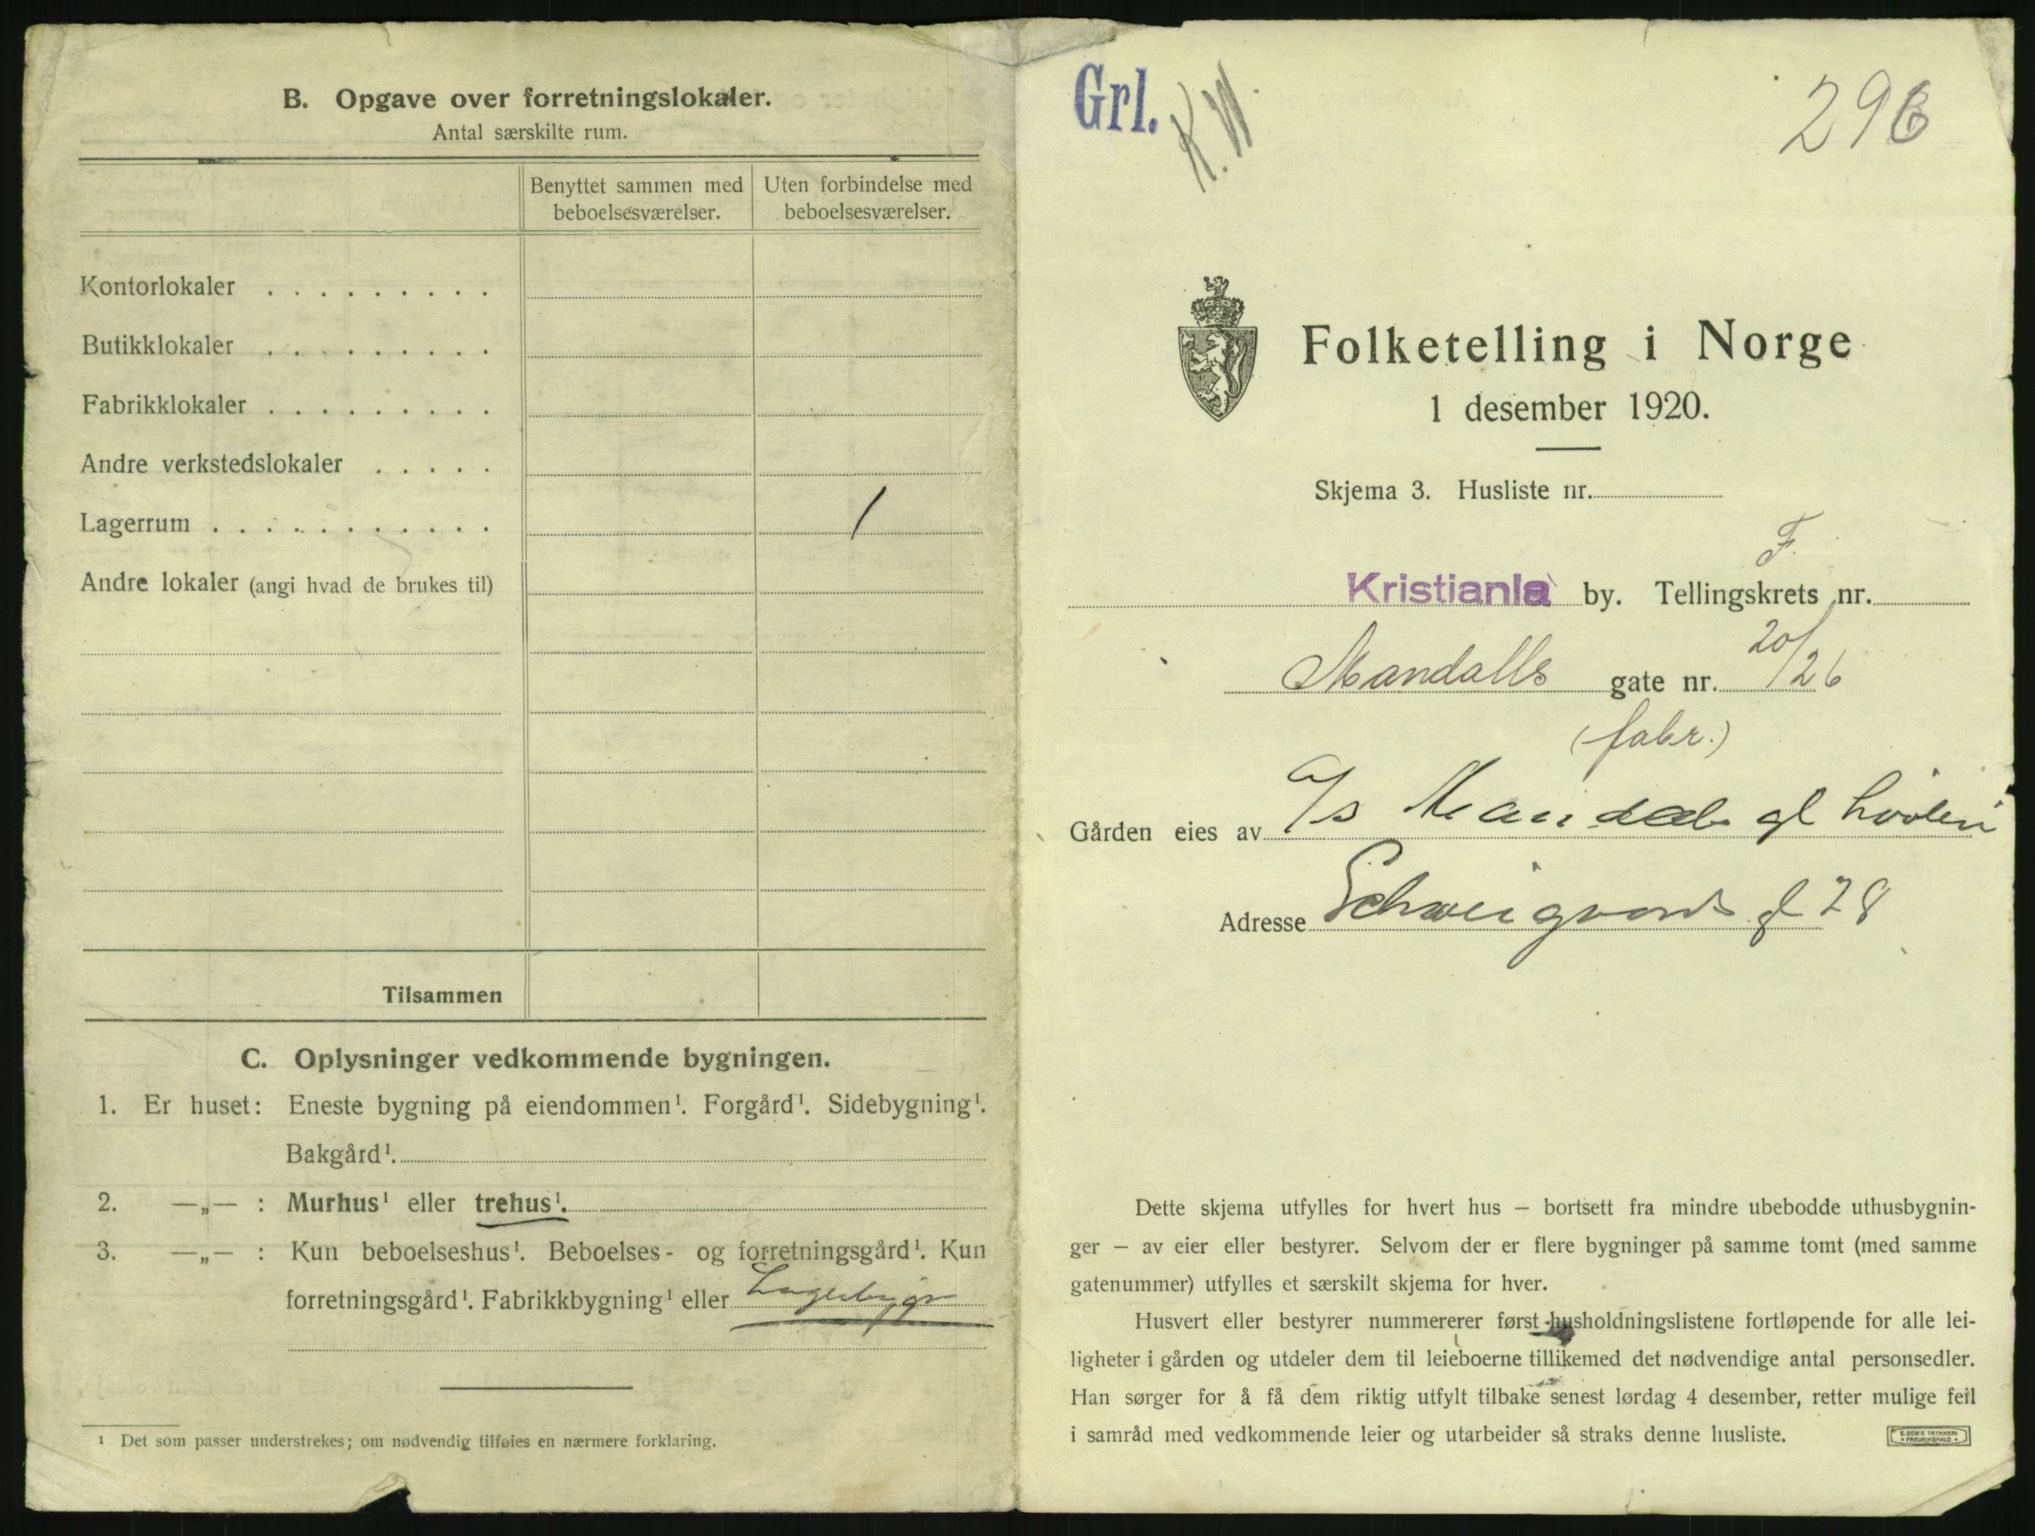 B. Opgave over forretningslokaler.
Antal særskilte rum.
Benyttet sammen med beboelsesværelser.
Uten forbindelse med beboelsesværelser.
Kontorlokaler . . . . . . . . .
Butikklokaler . . . . . . . . .
Fabrikklokaler . . . . . . . . .
Andre verkstedslokaler . . . . .
Lagerrum . . . . . . . . . . . 1
Andre lokaler (angi hvad de brukes til)
Tilsammen
C. Oplysninger vedkommende bygningen.
1. Er huset: Eneste bygning på eiendommen¹. Forgård¹. Sidebygning¹.
Bakgård¹.
2. —„— : Murhus¹ eller trehus¹.
3. —„— : Kun beboelseshus¹. Beboelses- og forretningsgård¹. Kun
forretningsgård¹. Fabrikkbygning¹ eller Lagerbygn
¹ Det som passer understrekes; om nødvendig tilføies en nærmere forklaring.
Grl. K.W. 296
Folketelling i Norge
1 desember 1920.
Skjema 3. Husliste nr.
F.
Kristiania by. Tellingskrets nr.
Mandalls gate nr. 20/26
(fabr.)
Gården eies av A/s Mandals gt
Adresse Schweigaards g 78
Dette skjema utfylles for hvert hus — bortsett fra mindre ubebodde uthusbygnin-
ger — av eier eller bestyrer. Selvom der er flere bygninger på samme tomt (med samme
gatenummer) utfylles et særskilt skjema for hver.
Husvert eller bestyrer nummererer først husholdningslistene fortløpende for alle lei-
ligheter i gården og utdeler dem til leieboerne tillikemed det nødvendige antal personsedler.
Han sørger for å få dem riktig utfylt tilbake senest lørdag 4 desember, retter mulige feil
i samråd med vedkommende leier og utarbeider så straks denne husliste.